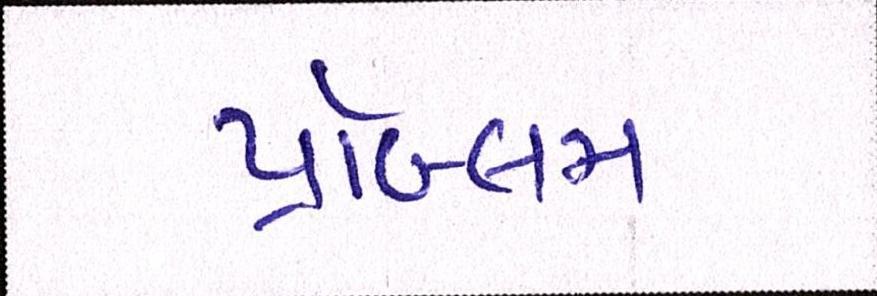 પ્રોબ્લમ